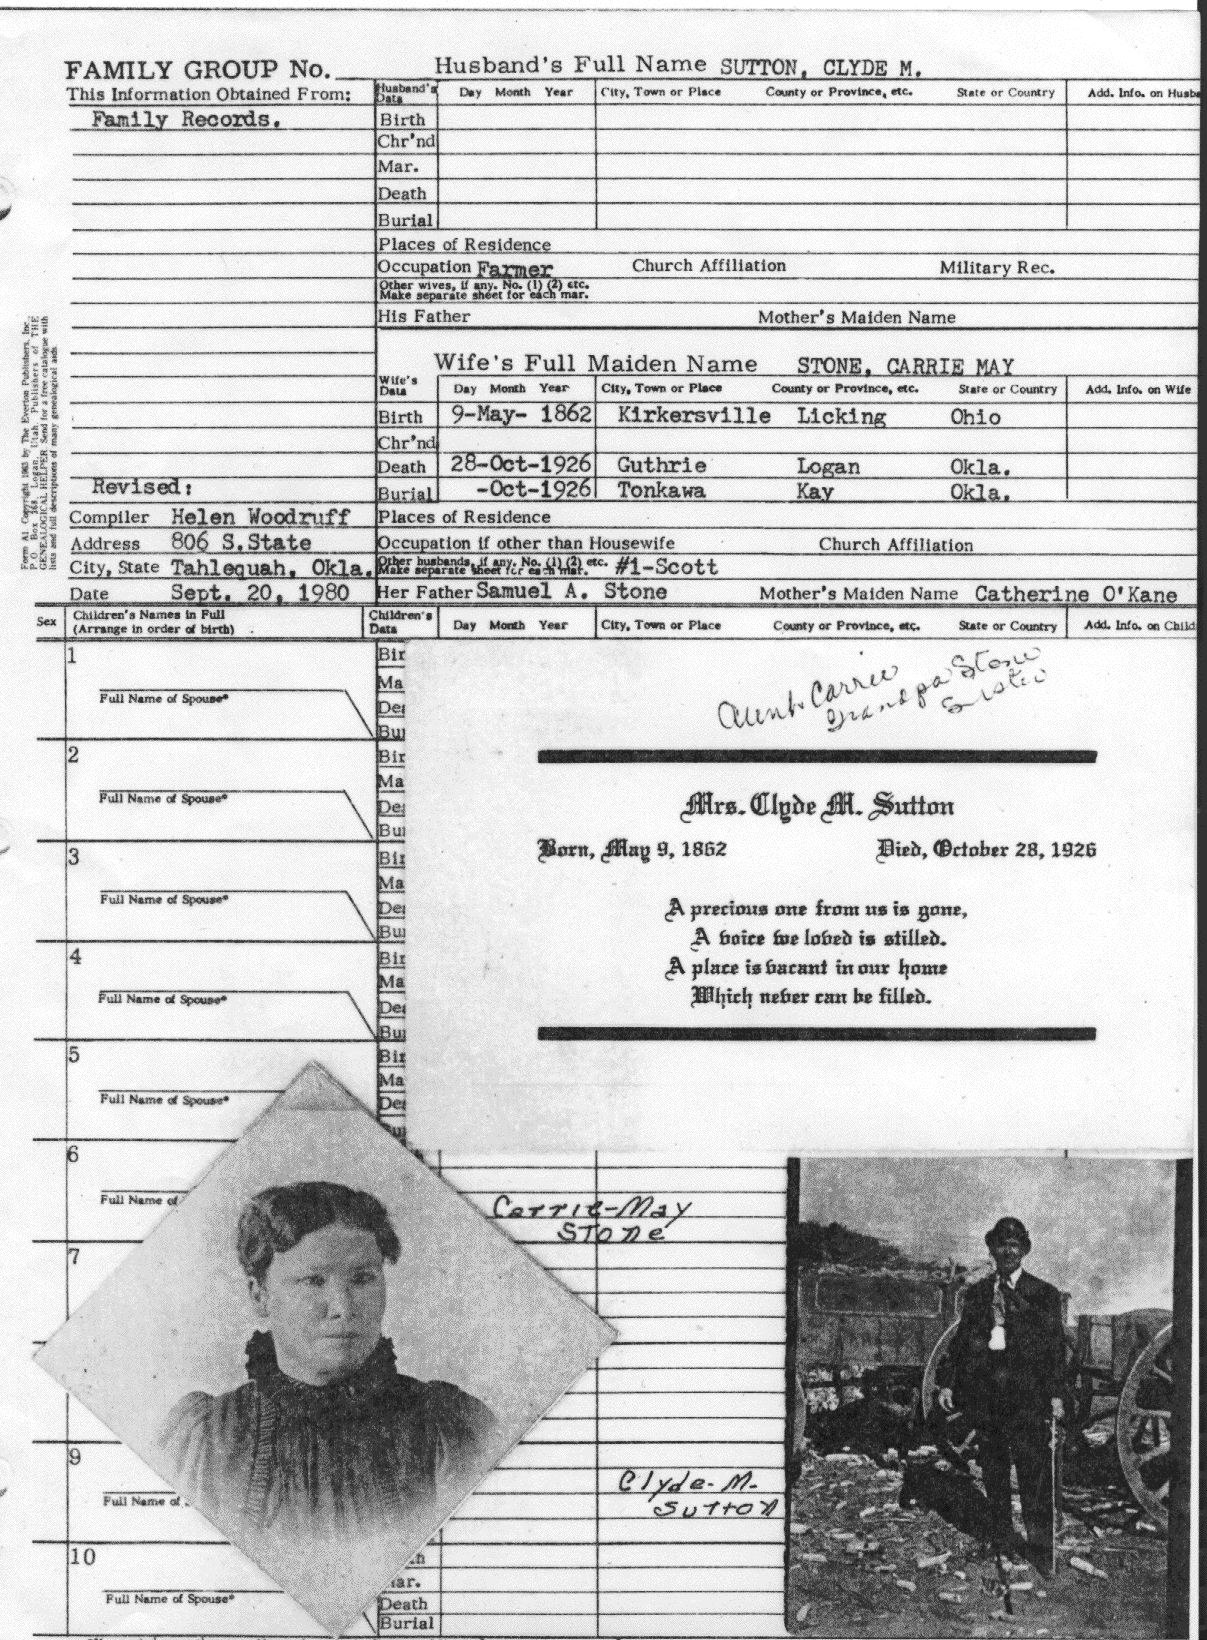 FAMILY GROUP No.
Husband's Full Name SUTTON, CLYDE M.
This Information Obtained From:
Family Records.
Husband's Data Day Month Year City, Town or Place County or Province, etc. State or Country Add. Info. on Husba
Birth
Chr'nd
Mar.
Death
Burial
Places of Residence
Occupation Farmer Church Affiliation Military Rec.
Other wives, if any. No. (1) (2) etc.
Make separate sheet for each mar.
His Father Mother's Maiden Name
Wife's Full Maiden Name STONE, CARRIE MAY
Wife's Data Day Month Year City, Town or Place County or Province, etc. State or Country Add. Info. on Wife
Birth 9-May- 1862 Kirkersville Licking Ohio
Chr'nd
Death 28-Oct-1926 Guthrie Logan Okla.
Burial -Oct-1926 Tonkawa Kay Okla.
Form A1. Copyright 1963 by The Everton Publishers, Inc.,
P.O. Box 368, Logan, Utah. Publishers of THE
GENEALOGICAL HELPER. Send for a free catalogue with
lists and full descriptions of many genealogical aids.
Revised:
Compiler Helen Woodruff
Address 806 S.State
City, State Tahlequah, Okla.
Date Sept. 20, 1980
Places of Residence
Occupation if other than Housewife Church Affiliation
Other husbands, if any. No. (1) (2) etc.
Make separate sheet for each mar. #1-Scott
Her Father Samuel A. Stone Mother's Maiden Name Catherine O'Kane
Sex Children's Names in Full
(Arrange in order of birth)
Children's Data Day Month Year City, Town or Place County or Province, etc. State or Country Add. Info. on Child
1
Full Name of Spouse*
Bir
Ma
Dea
Bur
2
Full Name of Spouse*
Bir
Ma
Dea
Bur
3
Full Name of Spouse*
Bir
Ma
Dea
Bur
4
Full Name of Spouse*
Bir
Ma
Dea
Bur
5
Full Name of Spouse*
Bir
Ma
Dea
Bur
Aunt Carrie
Grandpa Stone
Sister
Mrs. Clyde M. Sutton
Born, May 9, 1862 Died, October 28, 1926
A precious one from us is gone,
A voice we loved is stilled.
A place is vacant in our home
Which never can be filled.
6
Full Name of
7
Carrie-May
Stone
9
Full Name of
Clyde-M.
Sutton
10
Full Name of Spouse*
ar.
Death
Burial